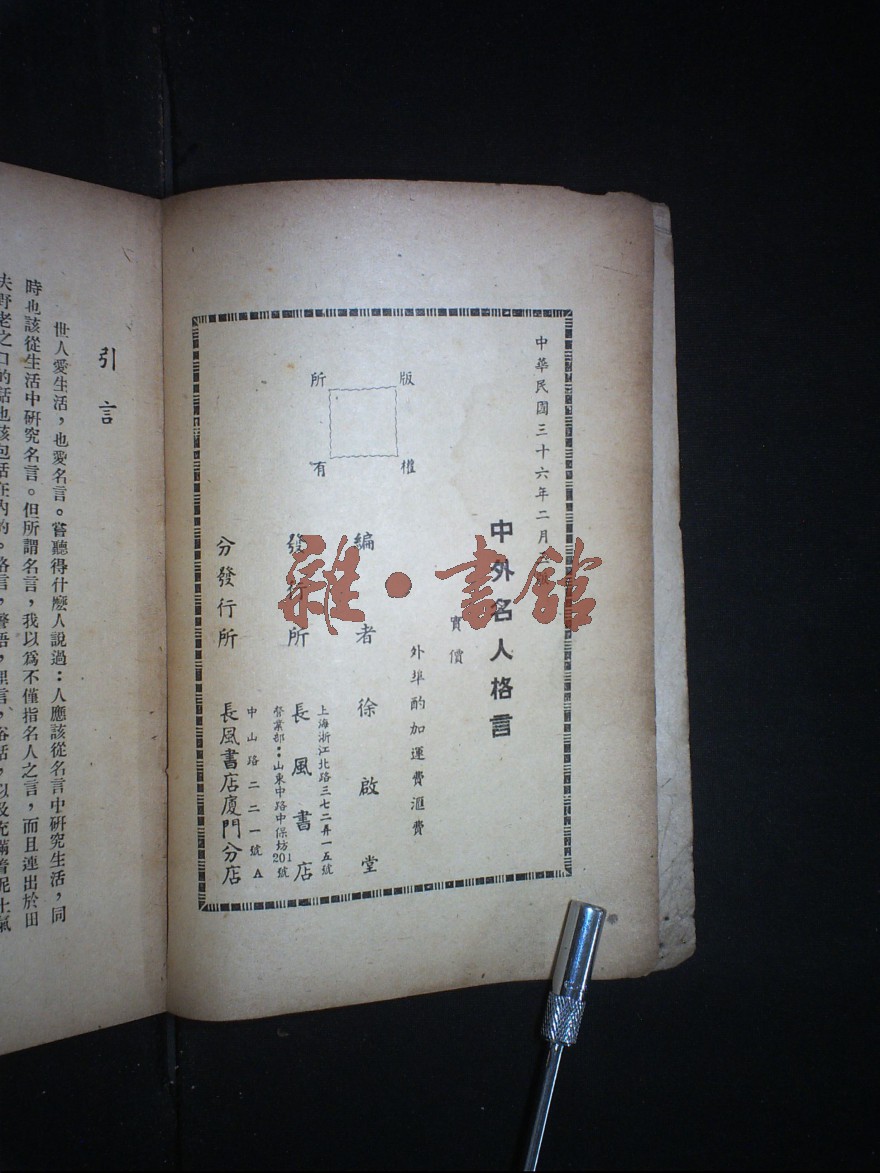 中華民國三十六年二月
中外名人格言
實價
外埠酌加運費滙費
版權
所有
編者 徐啟堂
發行所 長風書店
上海浙江北路三七二弄一五號
營業部：山東中路中保坊201號
分發行所 長風書店廈門分店
中山路二二一號A
引言
世人愛生活，也愛名言。嘗聽得什麽人說過：人應該從名言中研究生活，同
時也該從生活中研究名言。但所謂名言，我以爲不僅指名人之言，而且連出於田
夫野老之口的話也該包括在內的。格言，警語，俚言，俗話，以及充滿着泥土氣
雜·書館